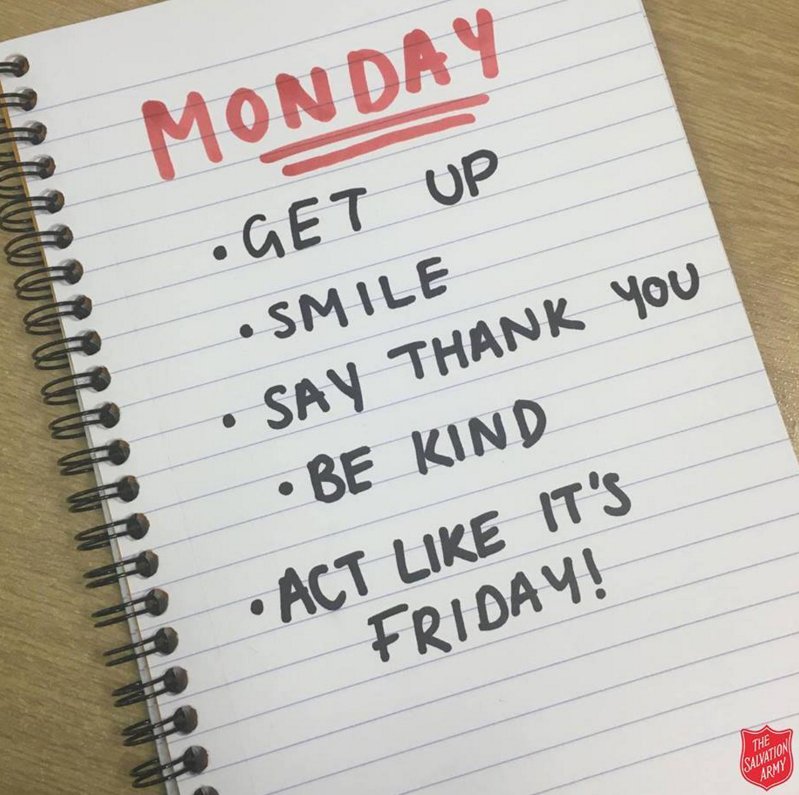 MONDAY
• GET UP
• SMILE
• SAY THANK YOU
• BE KIND
• ACT LIKE IT'S
FRIDAY!
THE
SALVATION
ARMY